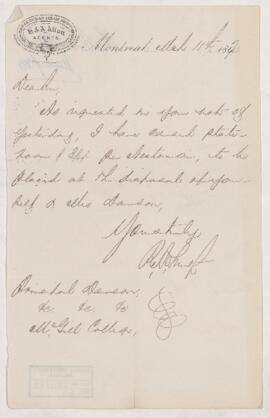 H & A Allan
AGENTS
Montreal Mch 11th 187
Dear Sir,
As requested in your note of
yesterday, I have caused state-
room 1 Spt per Nestorian, to be
placed at the disposal of your-
self & Mrs Dawson,
Yours truly,
Principal Dawson,
&c &c &c
McGill College,